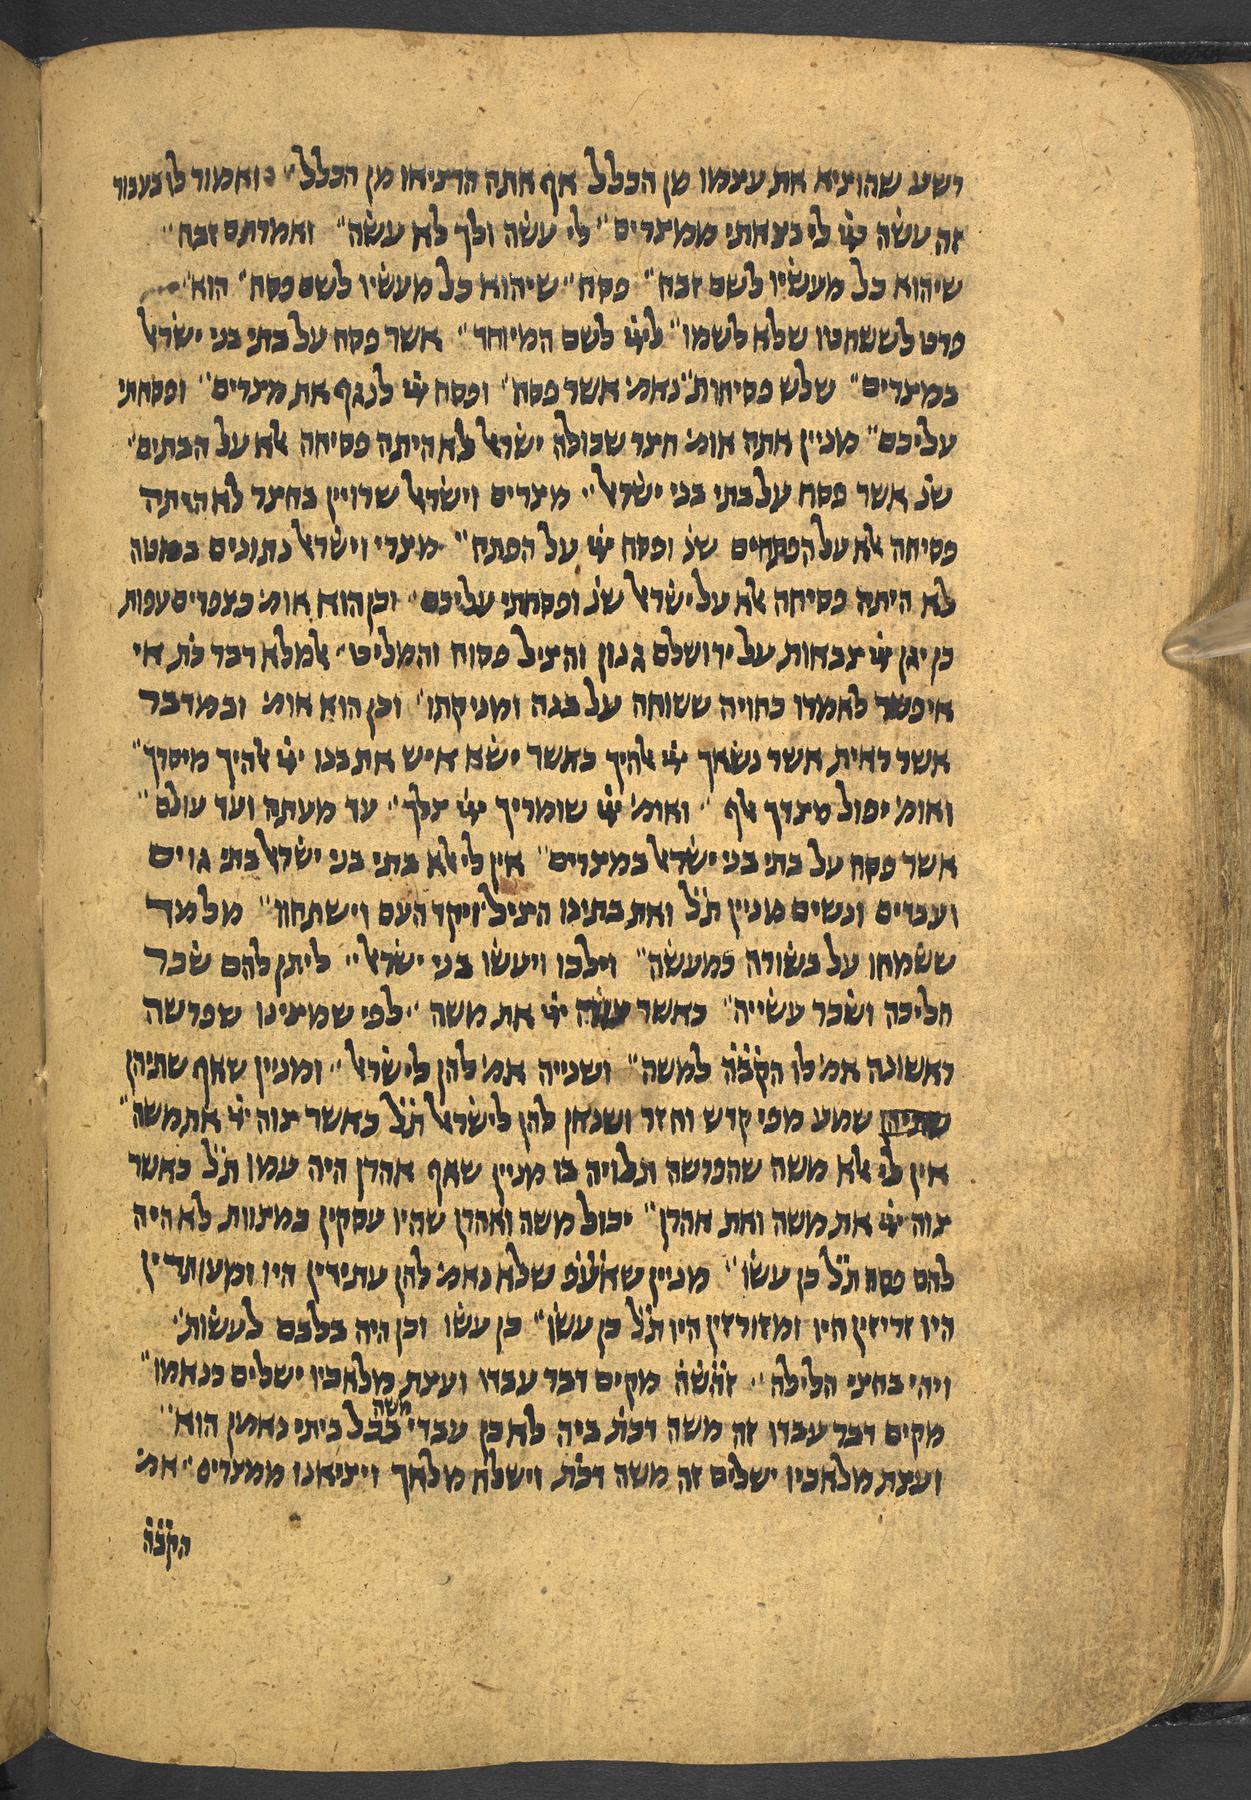 רשע שהוציא את עצמו מן הכלל אף אתה הוציאו מן הכלל״ ואמור לו בעבור
זה עשה ייי לי בצאתי ממצרים״ לי עשה ולך לא עשה״ ואמרתם זבח״
שיהוא כל מעשיו לשם זבח״ פסח״ שיהוא כל מעשיו לשם פסח״ הוא״
פרט לששחטו שלא לשמו״ לייי לשם המיוחד״ אשר פסח על בתי בני ישראל
במצרים״ שלש פסיחות״ נאמ׳ אשר פסח״ ופסח ייי לנגף את מצרים״ ופסחתי
עליכם״ מניין אתה אומ׳ חצר שכולה ישראל לא היתה פסיחה אלא על הבתים׳
שנ׳ אשר פסח על בתי בני ישראל״ מצרים וישראל שרויין בחצר לא היתה
פסיחה אלא על הפתחים שנ׳ ופסח ייי על הפתח״ מצרי וישראל נתונים במטה
לא היתה פסיחה אלא על ישראל שנ׳ ופסחתי עליכם״ וכן הוא אומ׳ כצפרים עפות
כן יגן ייי צבאות על ירושלם גנון והציל פסוח והמליט״ אלמלא דבר כת׳ אי
איפשר לאמרו כחויה ששוחה על בנה ומניקתו׳ וכן הוא אומ׳ ובמדבר
אשר ראית אשר נשאך ייי אלהיך כאשר ישא איש את בנו ייי אלהיך מיסרך״
ואומ׳ יפול מצדך אלף״ ואומ׳ ייי שומריך ייי צלך״ עד מעתה ועד עולם״
אשר פסח על בתי בני ישראל במצרים״ אין לי אלא בתי בני ישראל בתי גוים
ועבדים ונשים מניין ת״ל ואת בתינו הציל ויקד העם וישתחוו״ מלמד
ששמחו על בשורה כמעשה״ וילכו ויעשו בני ישראל״ ליתן להם שכר
הליכה ושכר עשייה״ כאשר צוה ייי את משה״ לפי שמצינו שפרשה
ראשונה אמ׳ לו הקב״ה למשה״ ושנייה אמ׳ להן לישראל״ ומניין שאף שתיהן
שתיהן שמע מפי קדש וחזר ושנאן להן לישראל ת״ל כאשר צוה ייי את משה״
אין לי אלא משה שהפרשה תלויה בו מניין שאף אהרן היה עמו ת״ל כאשר
צוה ייי את משה ואת אהרן״ יכול משה ואהרן שהיו עסקין במצוות לא היה
להם פסח ת״ל כן עשו״ מניין שאע״פ שלא נאמ׳ להן עתידין היו ומעותדין
היו זריזין היו ומזורזין היו ת״ל כן עשו״ כן עשו וכן היה בלבם לעשות׳
ויהי בחצי הלילה״ זהש״ה מקים דבר עבדו ועצת מלאכיו ישלים כנאמו״
מקים דבר עבדו זה משה דכת׳ ביה לא כן עבדי משה בכל ביתי נאמן הוא״
ועצת מלאכיו ישלים זה משה דכת׳ וישלח מלאך ויציאנו ממצרים״ אמ׳
הקב״ה